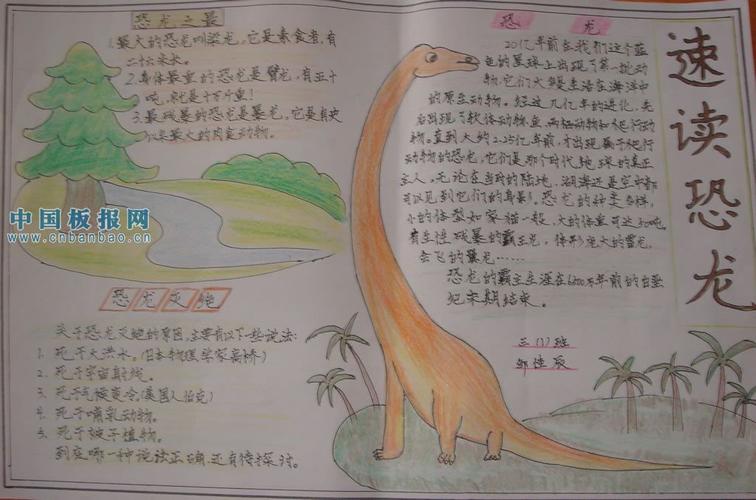 速读恐龙
恐龙之最
1.最大的恐龙叫梁龙,它是素食者,有
二十六米长。
2.身体最重的恐龙是臂龙,有五十
吨,就是十万斤重!
3.最残暴的恐龙是暴龙,它是有史
以来最大的肉食动物。
中国板报网
www.cnbanbao.cn
恐龙灭绝
关于恐龙灭绝的原因,主要有以下一些说法:
1. 死于大洪水。(日本物理学家高桥)
2. 死于宇宙射线。
3. 死于气候变冷(美国人伯克)
4. 死于哺乳动物。
5. 死于被子植物。
到底哪一种说读正确,还有待探讨。
恐 龙
20亿年前在我们这个蓝
色的星球上出现了第一批动
物,它们大多生活在海洋中
的原生动物。经过几亿年的进化,先
后出现了软体动物、鱼、两栖动物和爬行动
物。直到大约2.25亿年前,才出现属于爬行
动物的恐龙,它们是那个时代地球的真正
主人,无论在当时的陆地、湖海还是空中都
可以见到它们的身影!恐龙的种类多样,
小的体型如家猫一般,大的体重可达
有生性残暴的霸王龙,体形庞大的雷龙,
会飞的翼龙……
恐龙的霸主生涯在6500万年前的白垩
纪末期结束。
三(1)班
邹佳辰